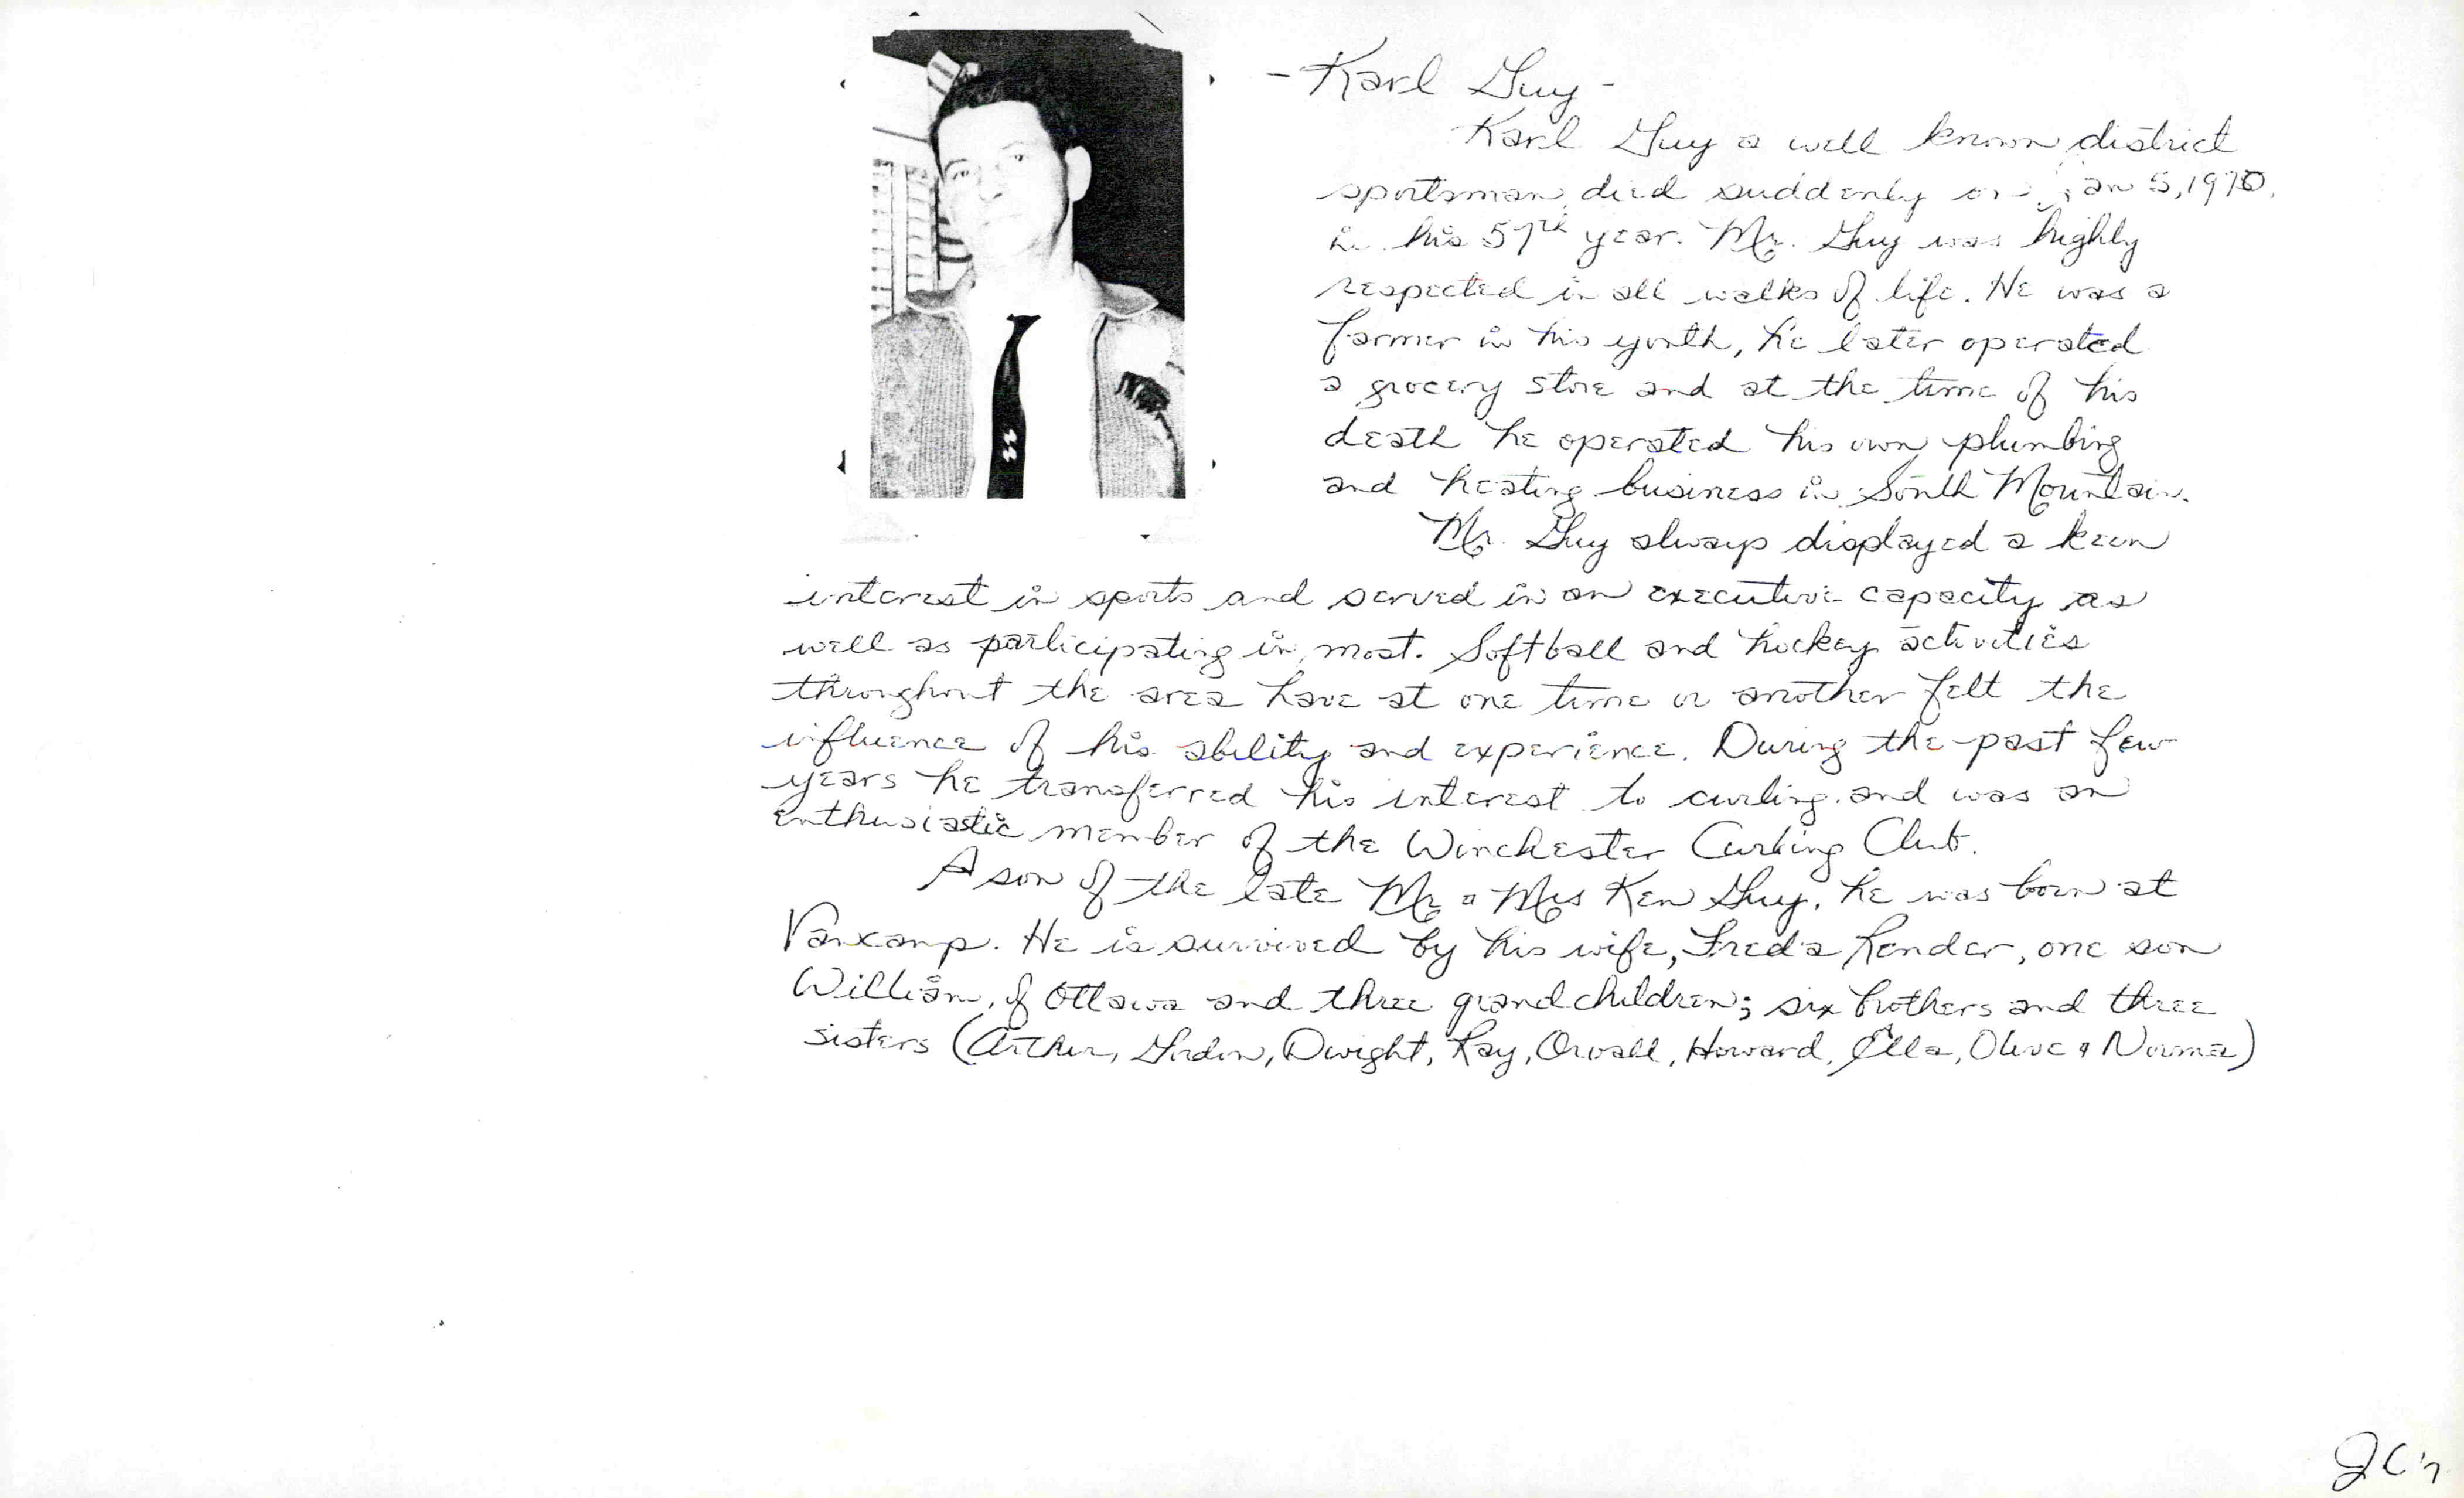 - Karl Guy -
Karl Guy a well known district
sportsman died suddenly on Jan 5, 1970.
in his 57th year. Mr. Guy was highly
respected in all walks of life. He was a
farmer in his youth, he later operated
a grocery store and at the time of his
death he operated his own plumbing
and heating business in South Mountain.
Mr. Guy always displayed a keen
interest in sports and served in an executive capacity as
well as participating in most. Softball and hockey activities
throughout the area have at one time or another felt the
influence of his ability and experience. During the past few
years he transferred his interest to curling and was an
enthusiastic member of the Winchester Curling Club.
A son of the late Mr & Mrs Ken Guy, he was born at
Vancamp. He is survived by his wife, Freda Render, one son
William, of Ottawa and three grandchildren; six brothers and three
sisters (Arthur, Gordon, Dwight, Ray, Orvall, Howard, Ella, Olive & Norma)